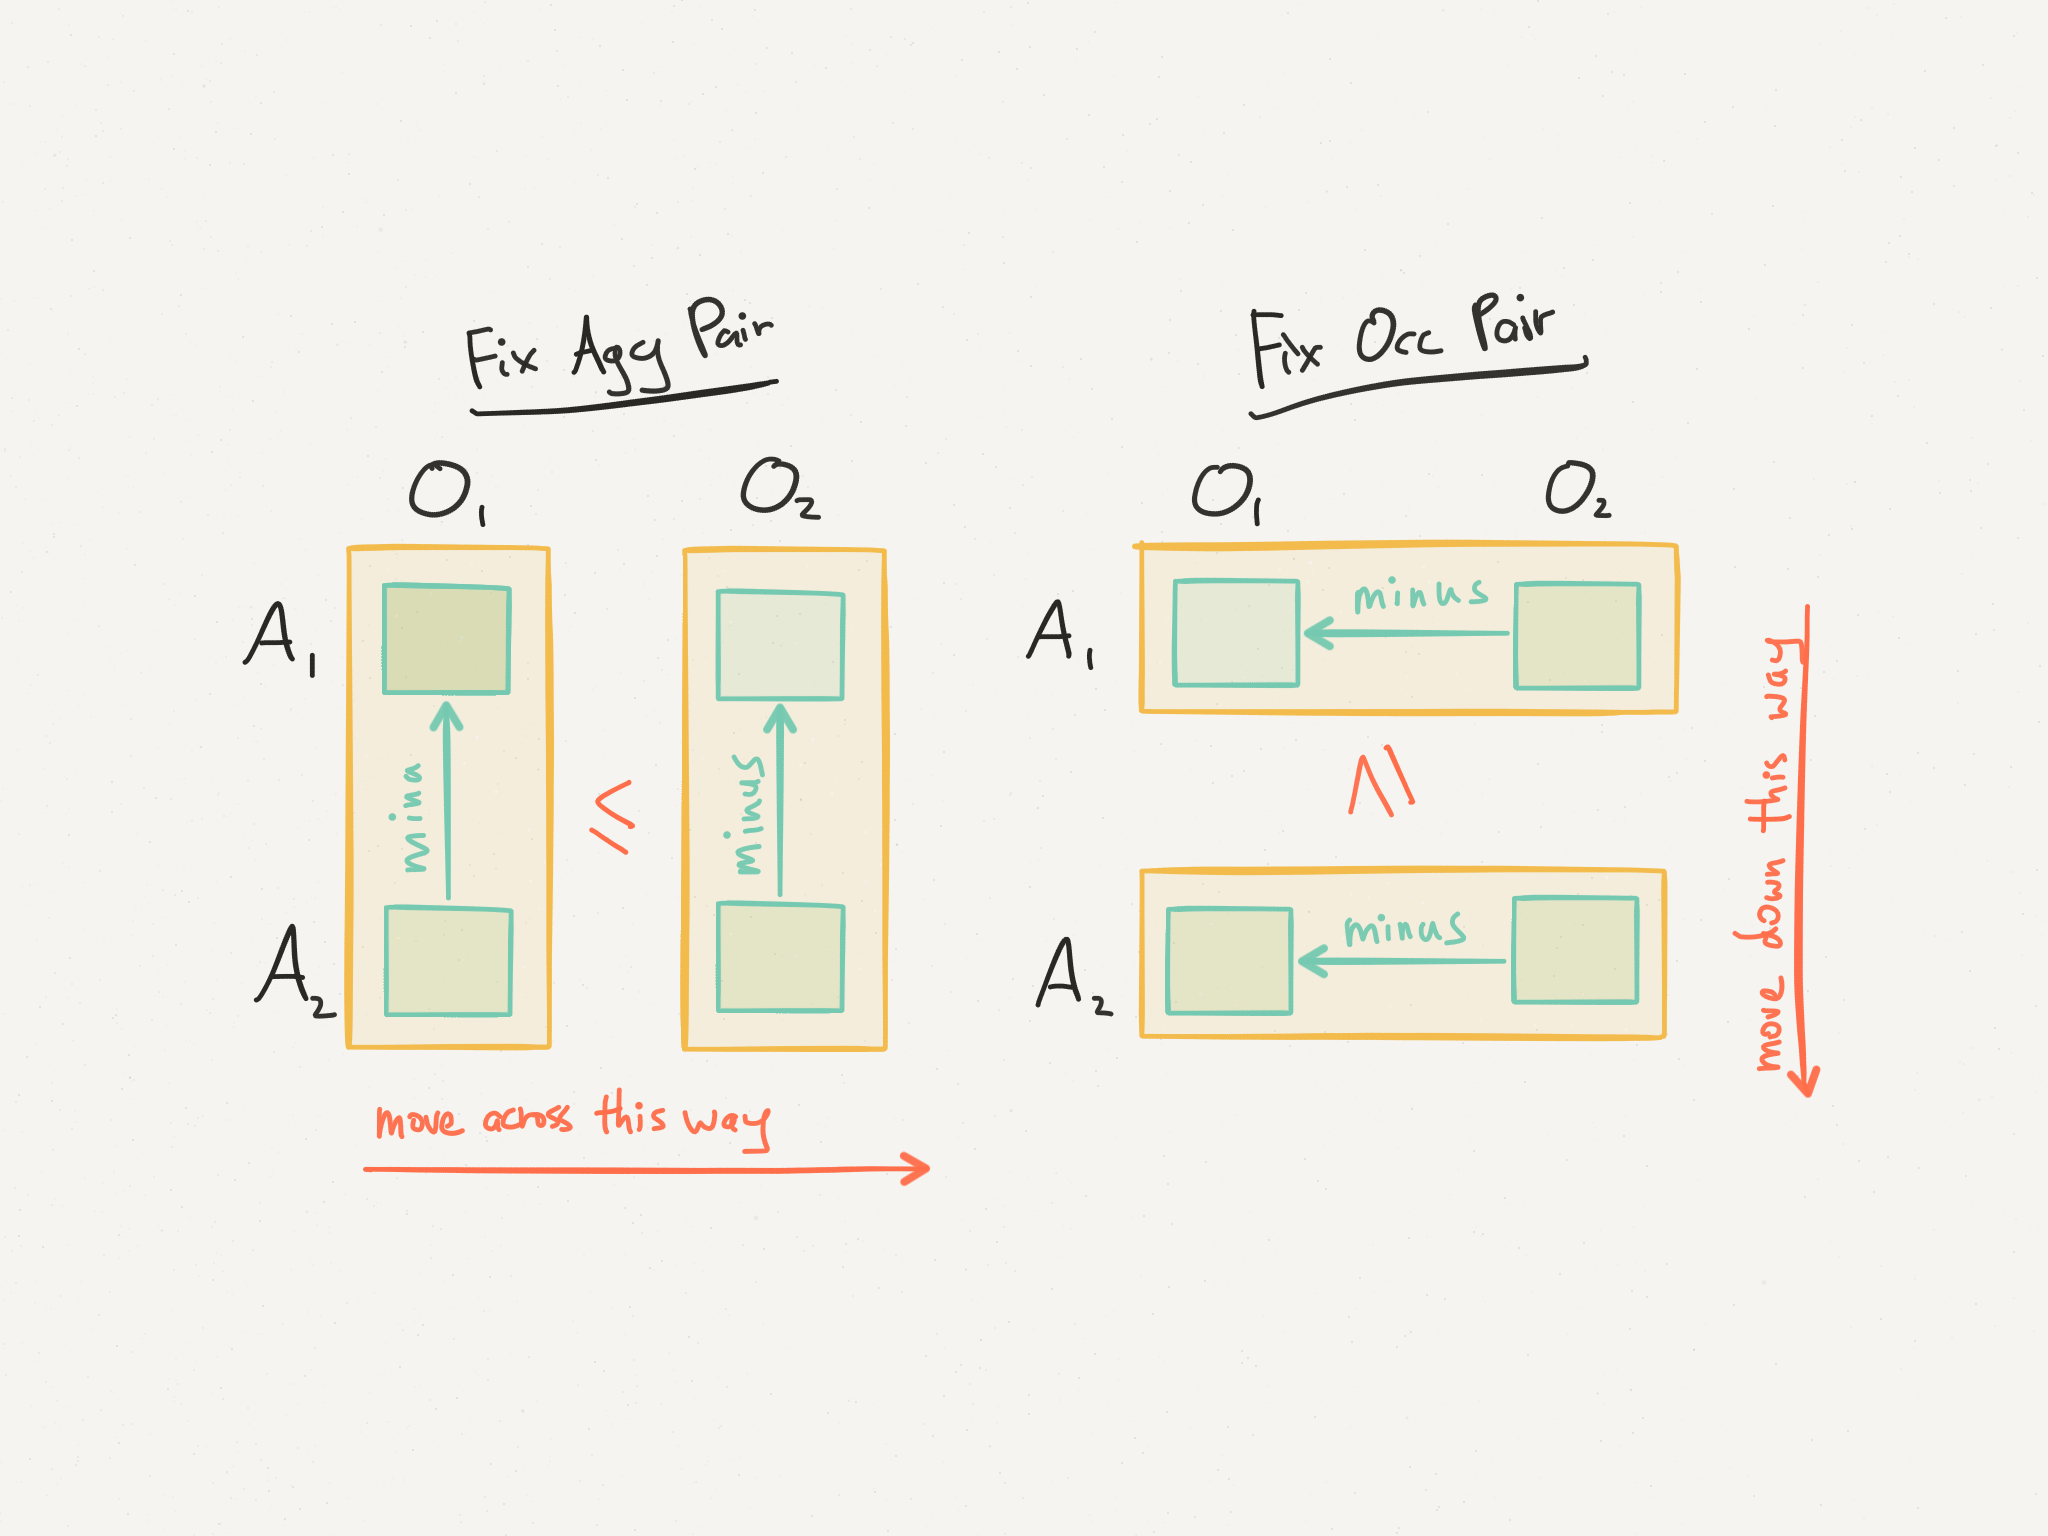 Fix Agg Pair
O1 O2
A1
minus
≤
minus
A2
move across this way
Fix Occ Pair
O1 O2
A1
minus
≤
A2
minus
move down this way